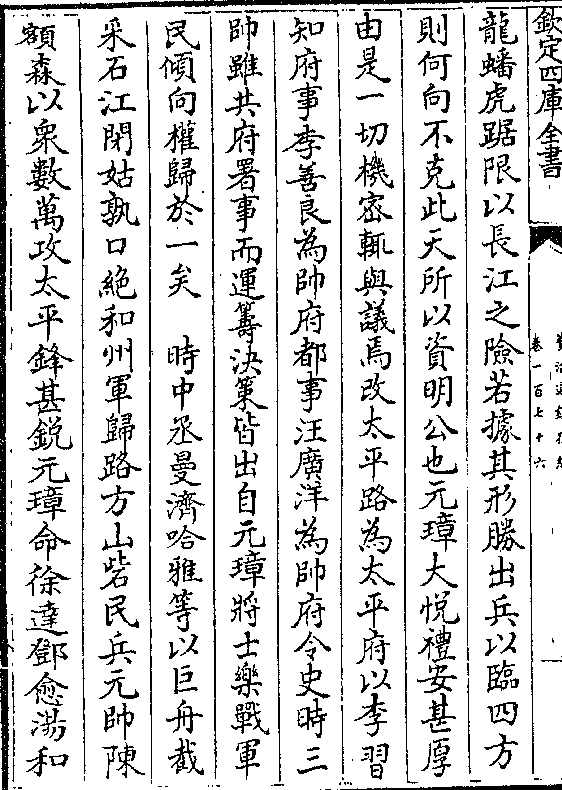 欽定四庫全書
卷一百七十六
龍蟠虎踞限以長江之險若據其形勝出兵以臨四方
則何向不克此天所以資明公也元璋大悅禮安甚厚
由是一切機密輒與議焉改太平路為太平府以李習
知府事李善良為帥府都事汪廣洋為帥府令史時三
帥雖共府署事而運籌決策皆出自元璋將士樂戰軍
民傾向權歸於一矣　時中丞曼濟哈雅等以巨舟截
采石江閉姑孰口絶和州軍歸路方山砦民兵元帥陳
額森以衆數萬攻太平鋒甚銳元璋命徐達鄧愈湯和